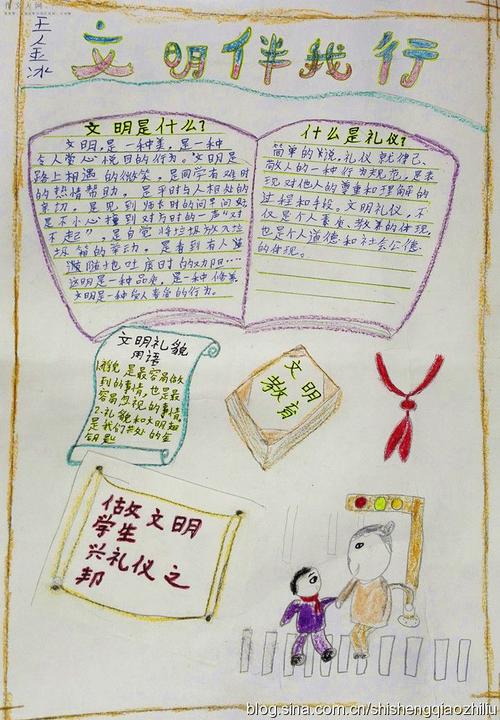 王金冰
文明伴我行
文明是什么？
文明,是一种美,是一种
令人赏心悦目的行为。文明是
路上相遇的微笑,是同学有难时
的热情帮助,是平时与人相处的
亲切,是见到师长时的问早问好,
是不小心撞到对方时的一声“对
不起”,是自觉将垃圾放入垃
圾箱的举动,是看到有人随
地吐痰时的劝阻…
文明是一种品质,是一种修养,
文明是一种受人尊重的行为。
什么是礼仪?
简单的说,礼仪就律己、
敬人的一种行为规范,是表
现对他人的尊重和理解的
过程和手段。文明礼仪,不
仅是个人素质、教养的体现,
也是个人道德和社会公德
的体现。
文明礼貌
用语
1.礼貌是最容易做
到的事情,也是最
容易忽视的事情,
2.礼貌和文明
是我们共处的金
钥匙
文明
教育
做文明
学生
兴礼仪之
邦
blog.sina.com.cn/shishengqiaozhiliu